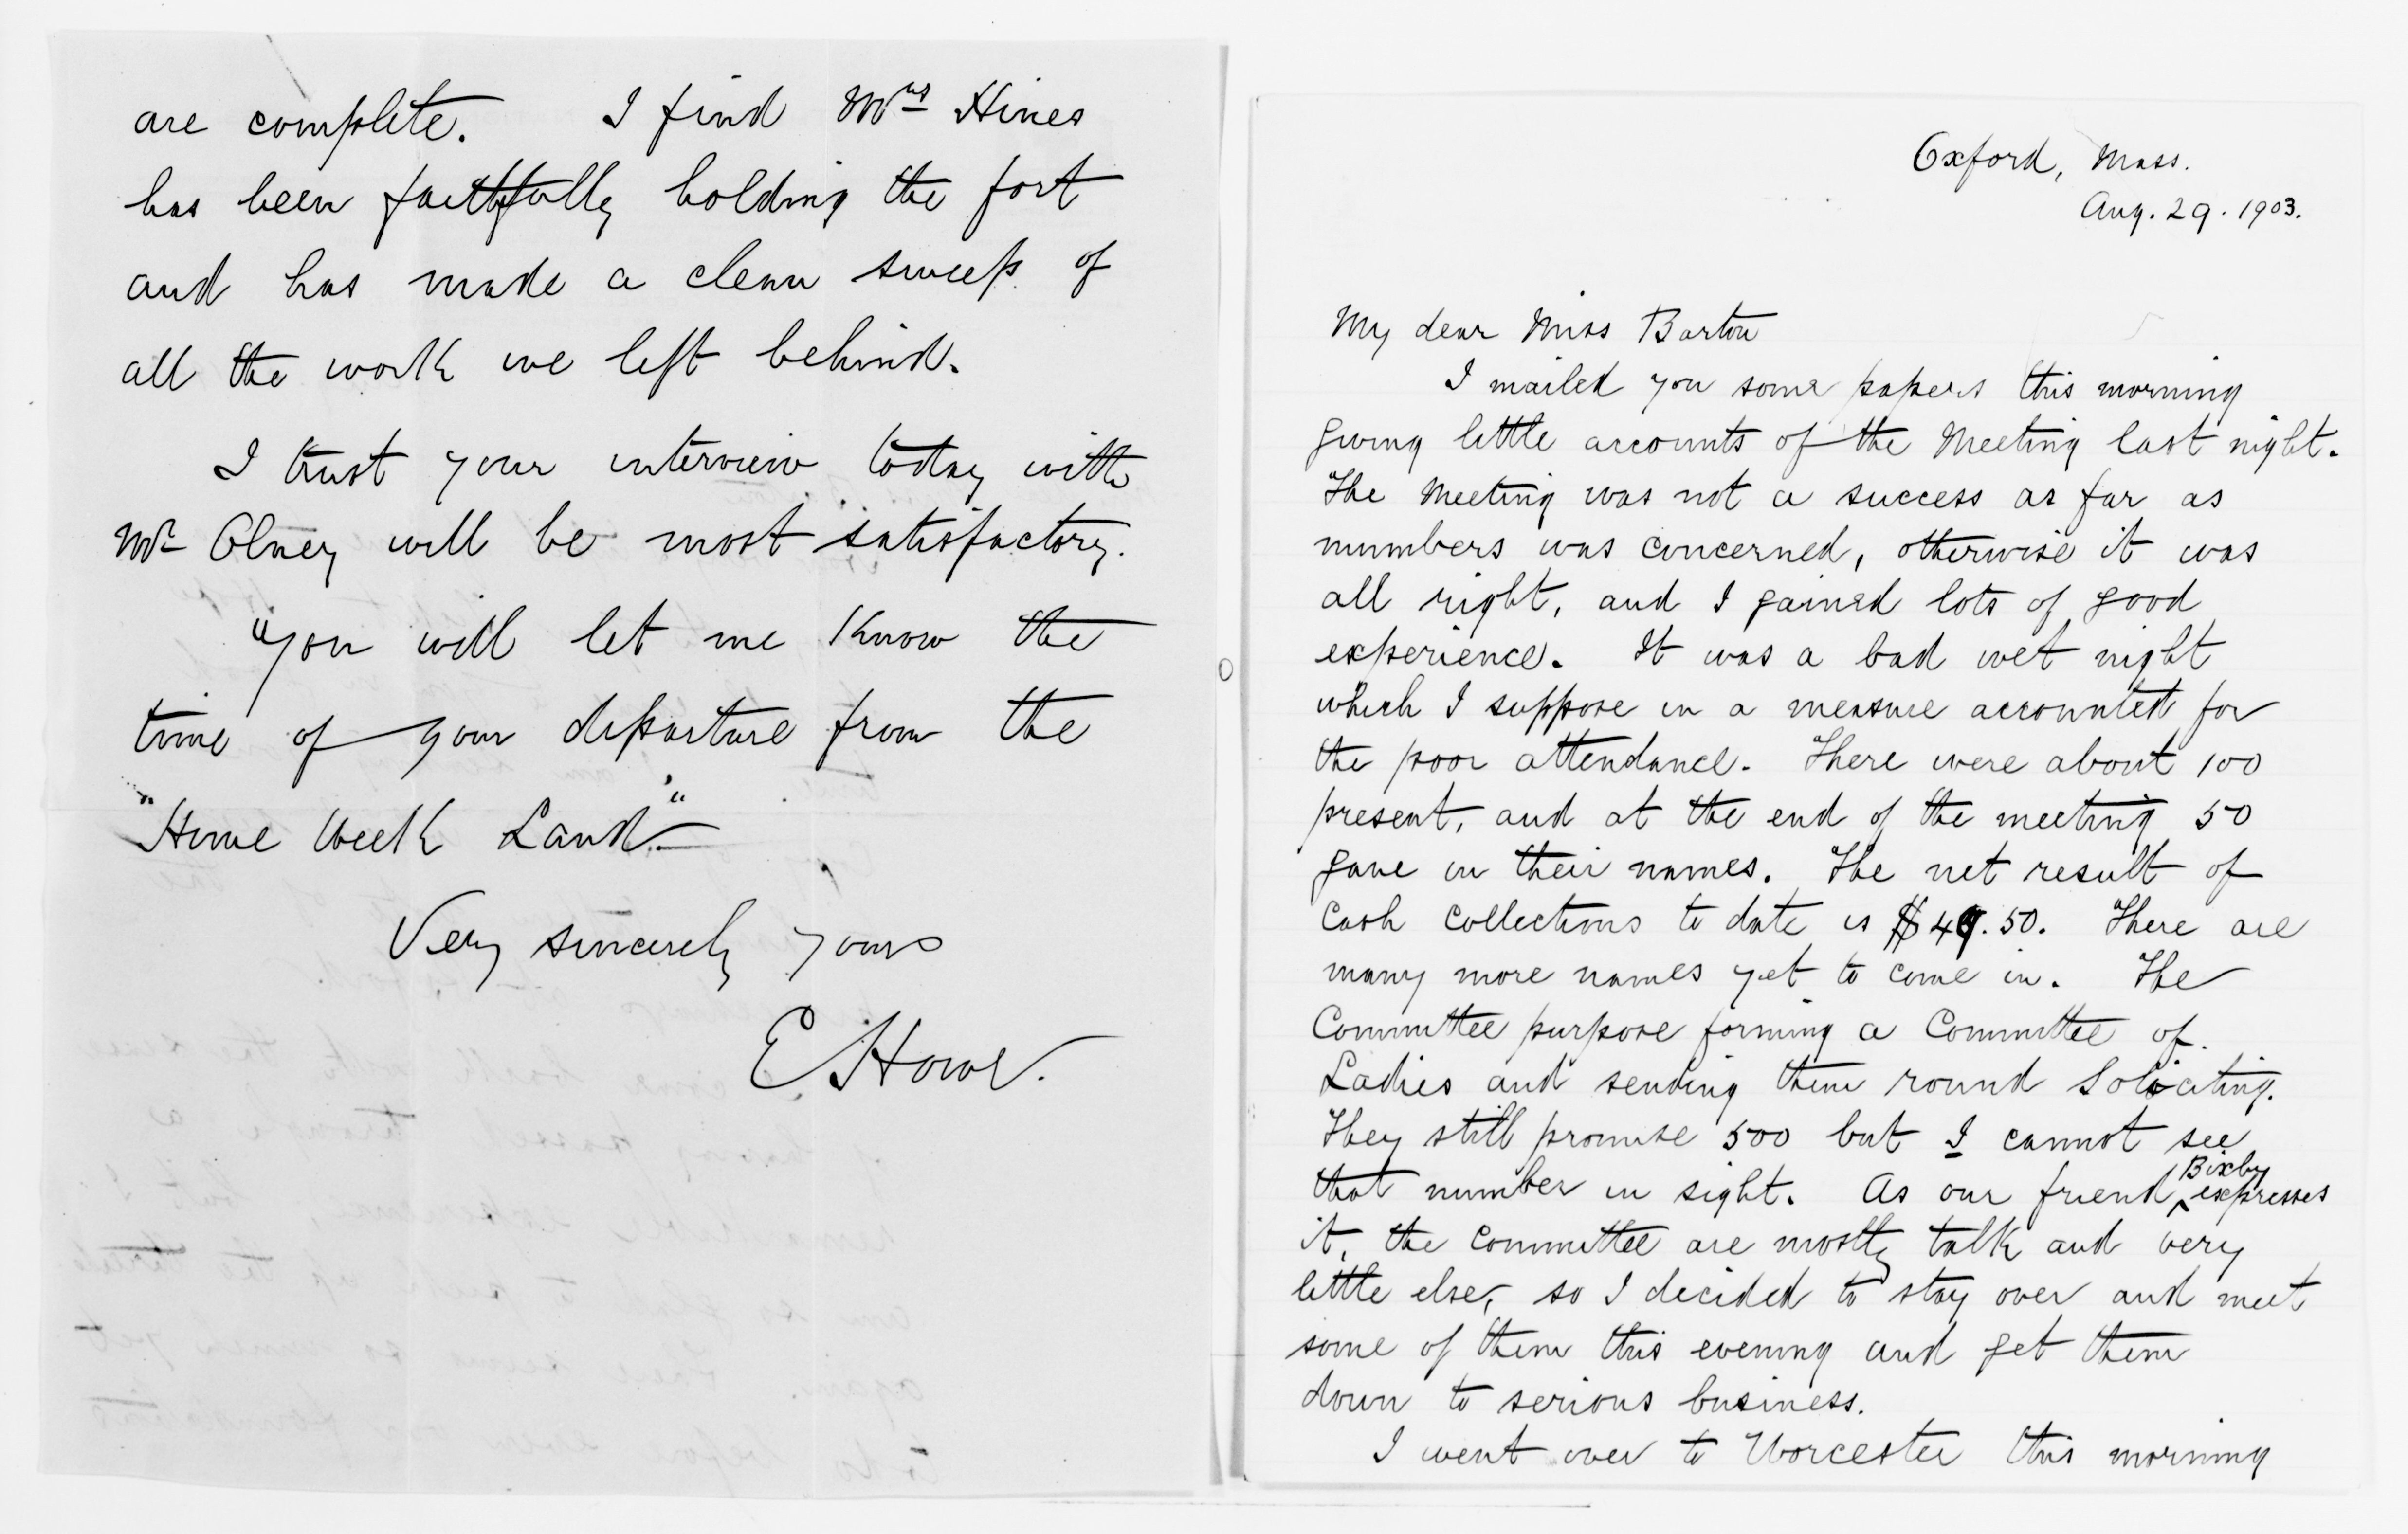 are complete. I find Mrs Hines
has been faithfully holding the fort
and has made a clean sweep of
all the work we left behind.
I trust your interview today with
Mr Olney will be most satisfactory.
"You will let me know the
time of your departure from the
"Home Week Land."
Very sincerely yours
E Howe.
Oxford, Mass.
Aug. 29. 1903.
My dear Miss Barton
I mailed you some papers this morning
giving little accounts of the Meeting last night.
The Meeting was not a success as far as
numbers was concerned, otherwise it was
all right, and I gained lots of good
experience. It was a bad wet night
which I suppose in a measure accounted for
the poor attendance. There were about 100
present, and at the end of the meeting 50
gave in their names. The net result of
Cash Collections to date is $49.50. There are
many more names yet to come in. The
Committee purpose forming a Committee of
Ladies and sending them round Soliciting.
They still promise 500 but I cannot see
that number in sight. As our friend Bixby expresses
it, the Committee are mostly talk and very
little else, so I decided to stay over and meet
some of them this evening and get them
down to serious business.
I went over to Worcester this morning